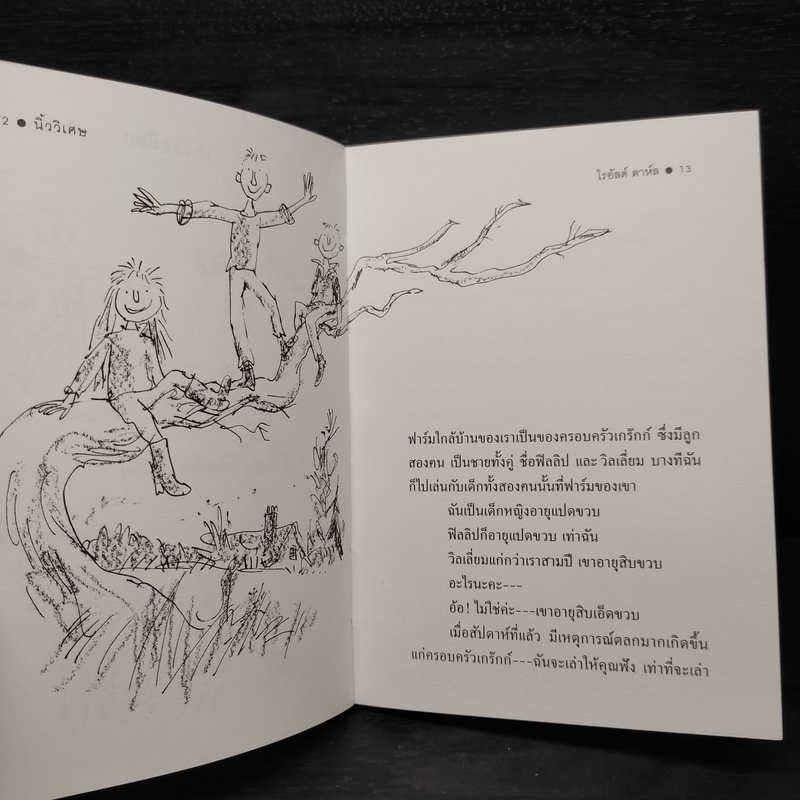 2 ● นิ้ววิเศษ
โรอัลด์ ดาห์ล ● 13
ฟาร์มใกล้บ้านของเราเป็นของครอบครัวเกร๊กก์ ซึ่งมีลูก
สองคน เป็นชายทั้งคู่ ชื่อฟิลลิป และ วิลเลี่ยม บางทีฉัน
ก็ไปเล่นกับเด็กทั้งสองคนนั้นที่ฟาร์มของเขา
ฉันเป็นเด็กหญิงอายุแปดขวบ
ฟิลลิปก็อายุแปดขวบ เท่าฉัน
วิลเลี่ยมแก่กว่าเราสามปี เขาอายุสิบขวบ
อะไรนะคะ---
อ้อ! ไม่ใช่ค่ะ---เขาอายุสิบเอ็ดขวบ
เมื่อสัปดาห์ที่แล้ว มีเหตุการณ์ตลกมากเกิดขึ้น
แก่ครอบครัวเกร๊กก์---ฉันจะเล่าให้คุณฟัง เท่าที่จะเล่า